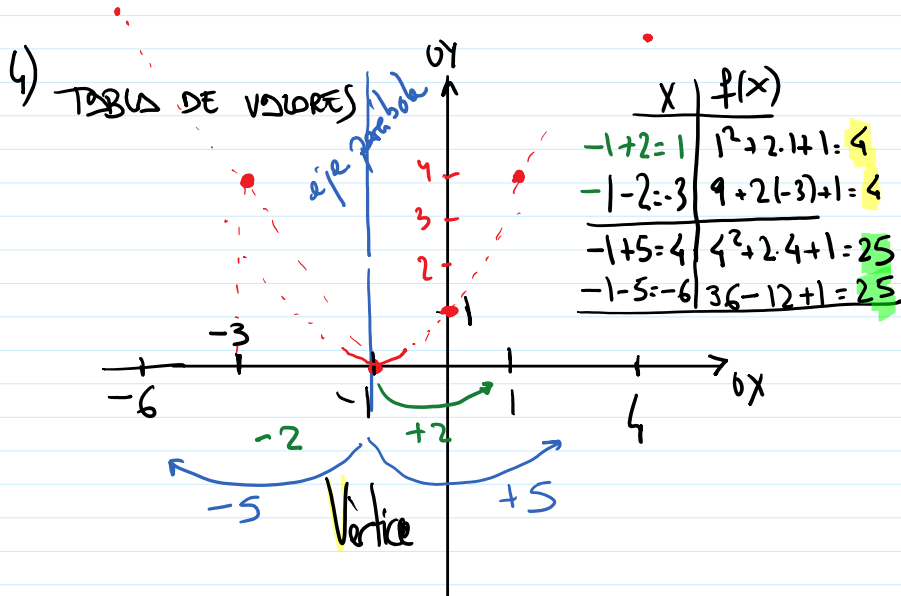 4)
TABLA DE VALORES
eje parábola
OY
x | f(x)
-1+2=1 | 1²+2.1+1=4
-1-2=-3 | 9+2(-3)+1=4
-1+5=4 | 4²+2.4+1=25
-1-5=-6 | 36-12+1=25
4
3
2
1
-3
-6
-1
1
4
OX
-2
+2
-5
+5
Vértice